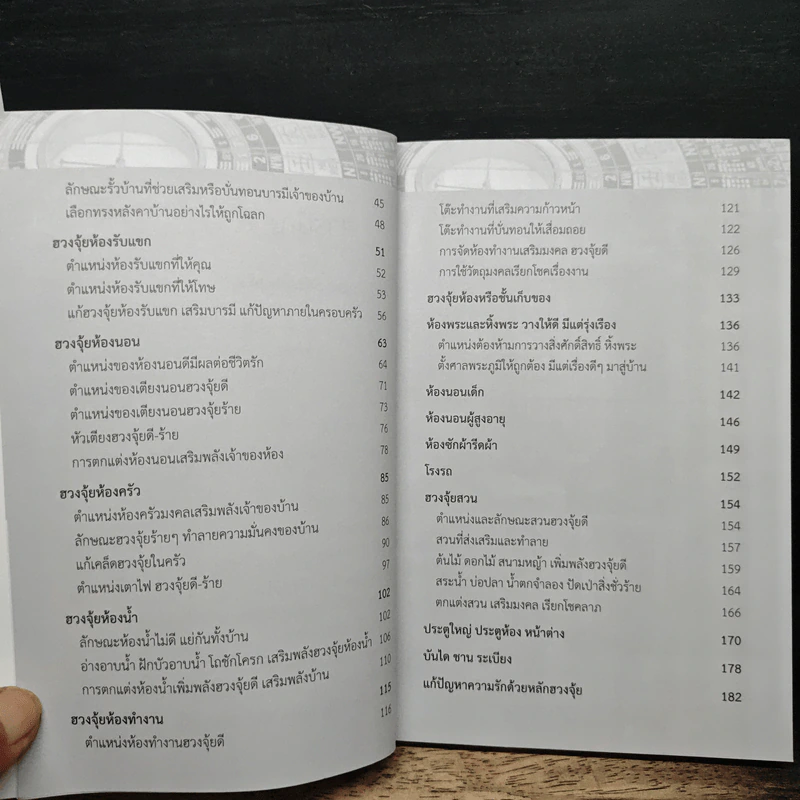 ลักษณะรั้วบ้านที่ช่วยเสริมหรือบั่นทอนบารมีเจ้าของบ้าน 45
เลือกทรงหลังคาบ้านอย่างไรให้ถูกโฉลก 48
ฮวงจุ้ยห้องรับแขก 51
ตำแหน่งห้องรับแขกที่ให้คุณ 52
ตำแหน่งห้องรับแขกที่ให้โทษ 53
แก้ฮวงจุ้ยห้องรับแขก เสริมบารมี แก้ปัญหาภายในครอบครัว 56
ฮวงจุ้ยห้องนอน 63
ตำแหน่งของห้องนอนดีมีผลต่อชีวิตรัก 64
ตำแหน่งของเตียงนอนฮวงจุ้ยดี 71
ตำแหน่งของเตียงนอนฮวงจุ้ยร้าย 73
หัวเตียงฮวงจุ้ยดี-ร้าย 76
การตกแต่งห้องนอนเสริมพลังเจ้าของห้อง 78
ฮวงจุ้ยห้องครัว 85
ตำแหน่งห้องครัวมงคลเสริมพลังเจ้าของบ้าน 85
ลักษณะฮวงจุ้ยร้ายๆ ทำลายความมั่นคงของบ้าน 86
แก้เคล็ดฮวงจุ้ยในครัว 90
ตำแหน่งเตาไฟ ฮวงจุ้ยดี-ร้าย 97
ฮวงจุ้ยห้องน้ำ 102
ลักษณะห้องน้ำไม่ดี แย่กันทั้งบ้าน 102
อ่างอาบน้ำ ฝักบัวอาบน้ำ โถชักโครก เสริมพลังฮวงจุ้ยห้องน้ำ 106
การตกแต่งห้องน้ำเพิ่มพลังฮวงจุ้ยดี เสริมพลังบ้าน 110
ฮวงจุ้ยห้องทำงาน 115
ตำแหน่งห้องทำงานฮวงจุ้ยดี 116
โต๊ะทำงานที่เสริมความก้าวหน้า 121
โต๊ะทำงานที่บั่นทอนให้เสื่อมถอย 122
การจัดห้องทำงานเสริมมงคล ฮวงจุ้ยดี 126
การใช้วัตถุมงคลเรียกโชคเรื่องงาน 129
ฮวงจุ้ยห้องหรือชั้นเก็บของ 133
ห้องพระและหิ้งพระ วางให้ดี มีแต่รุ่งเรือง 136
ตำแหน่งต้องห้ามการวางสิ่งศักดิ์สิทธิ์ หิ้งพระ 136
ตั้งศาลพระภูมิให้ถูกต้อง มีแต่เรื่องดีๆ มาสู่บ้าน 141
ห้องนอนเด็ก 142
ห้องนอนผู้สูงอายุ 146
ห้องซักผ้ารีดผ้า 149
โรงรถ 152
ฮวงจุ้ยสวน 154
ตำแหน่งและลักษณะสวนฮวงจุ้ยดี 154
สวนที่ส่งเสริมและทำลาย 157
ต้นไม้ ดอกไม้ สนามหญ้า เพิ่มพลังฮวงจุ้ยดี 159
สระน้ำ บ่อปลา น้ำตกจำลอง ปัดเป่าสิ่งชั่วร้าย 164
ตกแต่งสวน เสริมมงคล เรียกโชคลาภ 166
ประตูใหญ่ ประตูห้อง หน้าต่าง 170
บันได ชาน ระเบียง 178
แก้ปัญหาความรักด้วยหลักฮวงจุ้ย 182